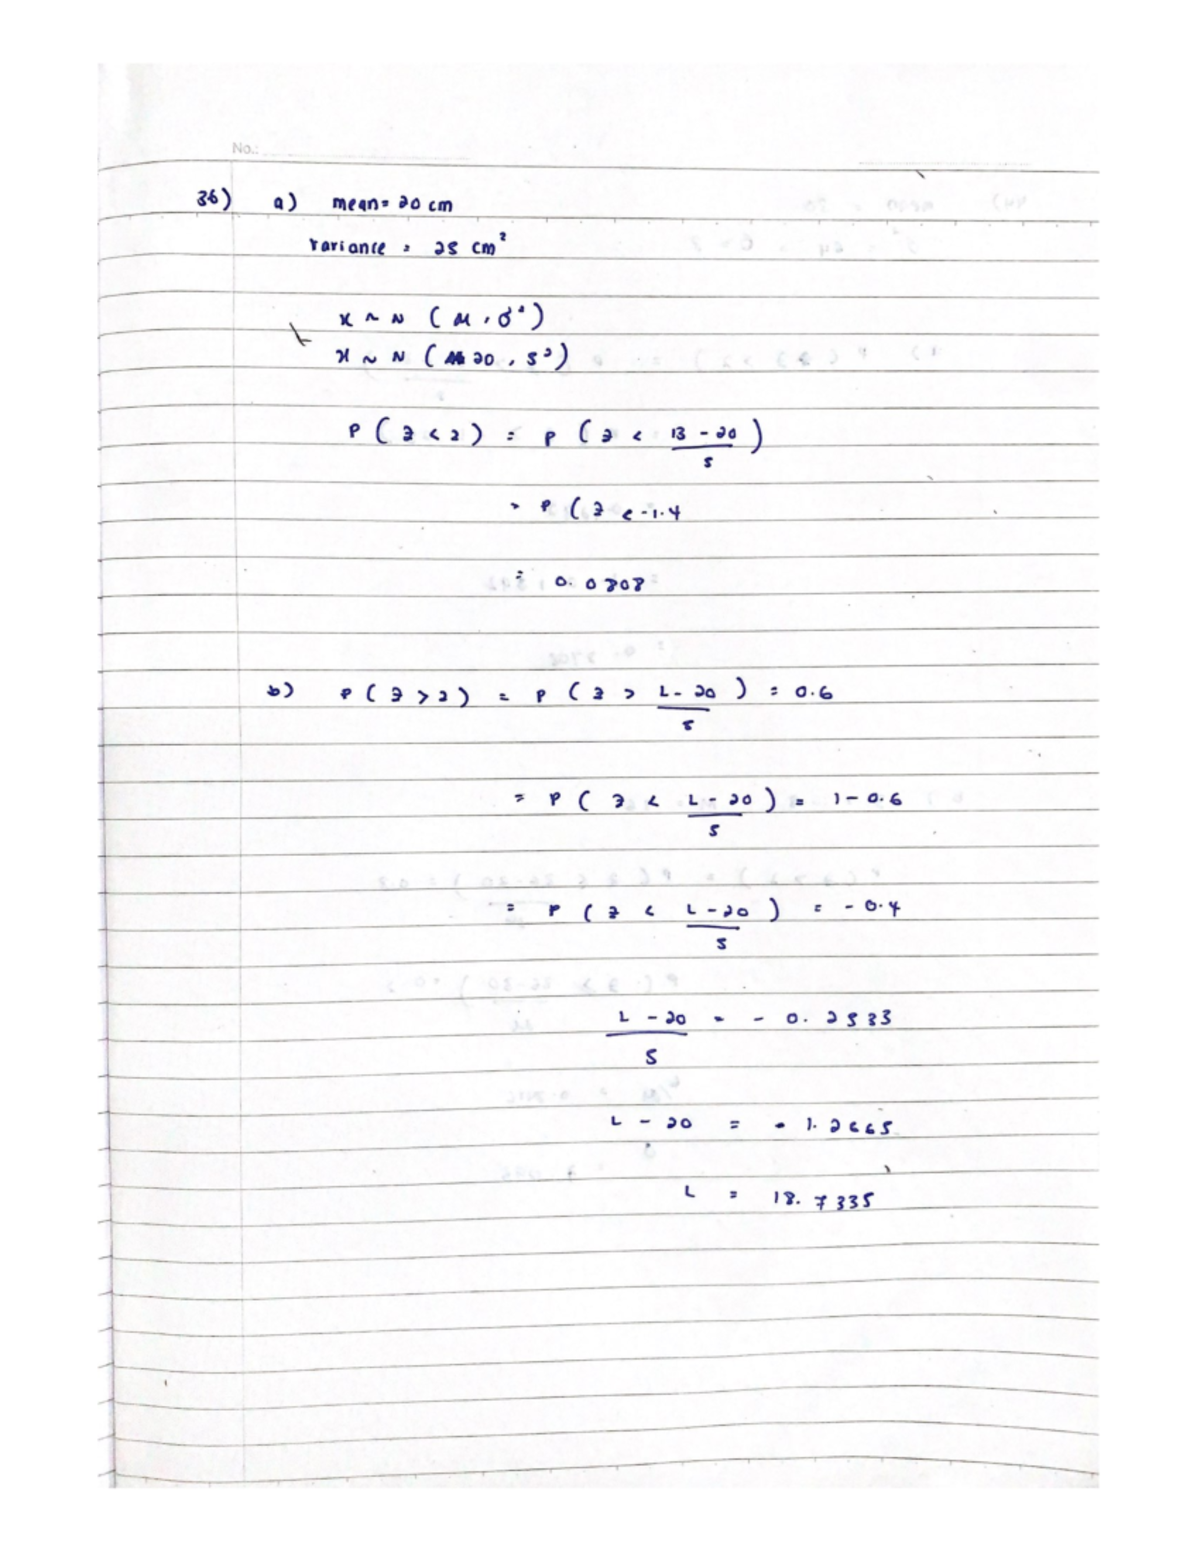 No.:
36) a) mean= 20 cm
variance = 25 cm²
x ~ N ( μ , σ² )
x ~ N ( 20 , 5² )
P ( z < 2 ) = P ( z < 13 - 20 / 5 )
= P ( z < -1.4
= 0.0808
b) P ( z > 2 ) = P ( z > L - 20 / 5 ) = 0.6
= P ( z < L - 20 / 5 ) = 1 - 0.6
= P ( z < L - 20 / 5 ) = - 0.4
L - 20 / 5 = - 0.2533
L - 20 = - 1.2665
L = 18.7335